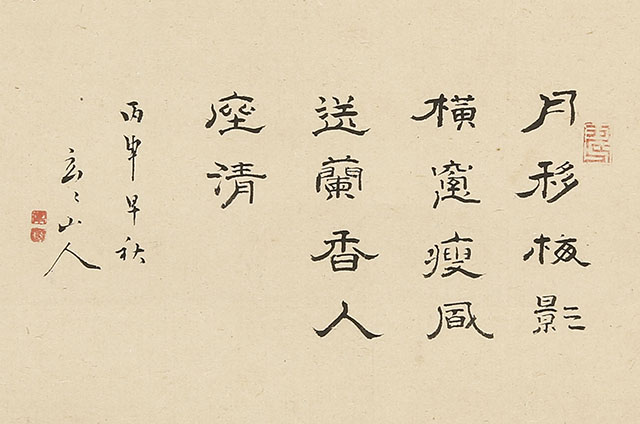 月移梅影
橫窻瘦風
送蘭香入
座清
丙申早秋
玄々山人